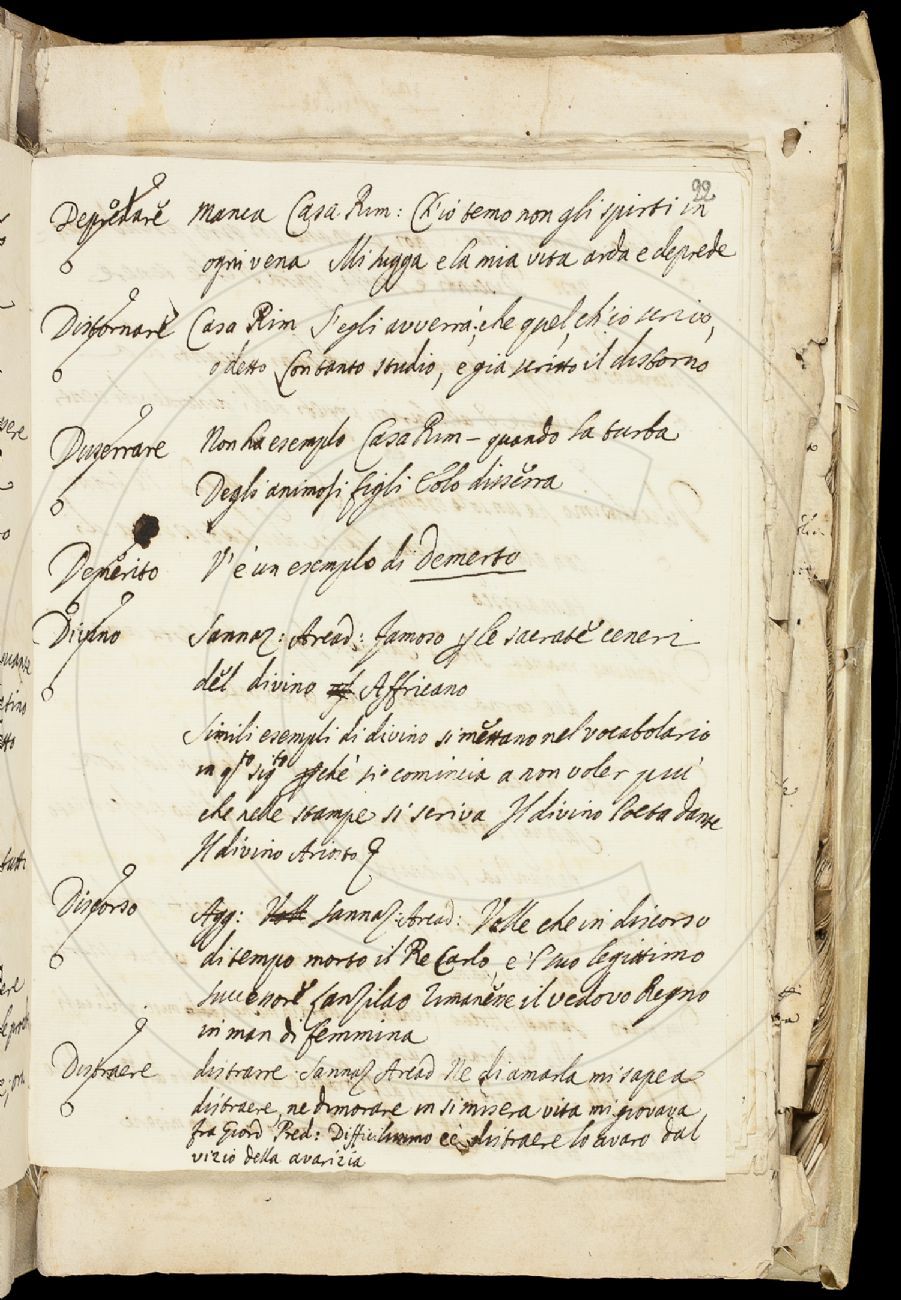 22
Depredare manca Casa Rim: Ch'io temo non gli spirti in
ogni vena Mi sugga e la mia vita arda e deprede
Distornare Casa Rim S'egli avverrà, che quel, ch'io scrivo,
o detto Con tanto studio, e già scritto il distorno
Disserrare Non ha esempio Casa Rim - quando la turba
Degli animosi figli Eolo disserra
Demerito V'è un esempio di Demerto
Divino Sannaz: Arcad: famoso p le sacrate ceneri
del divino Affricano
Simili esempli di divino si mettano nel vocabolario
in qsto sigto pchè si comincia a non voler piu
che nelle stampe si scriva Il divino Poeta Dante
Il divino Ariosto
Discorso Agg: Sannaz: Arcad: Volle che in discorso
di tempo morto il Re Carlo, e 'l suo legittimo
successore Lanzilao rimanesse il vedovo Regno
in man di femmina
Distraere distrarre. Sannaz Arcad Ne di amarla mi sapea
distraere, ne dimorare in si misera vita mi giovava
fra Giord Pred: Difficilissimo è distraere lo avaro dal
vizio della avarizia